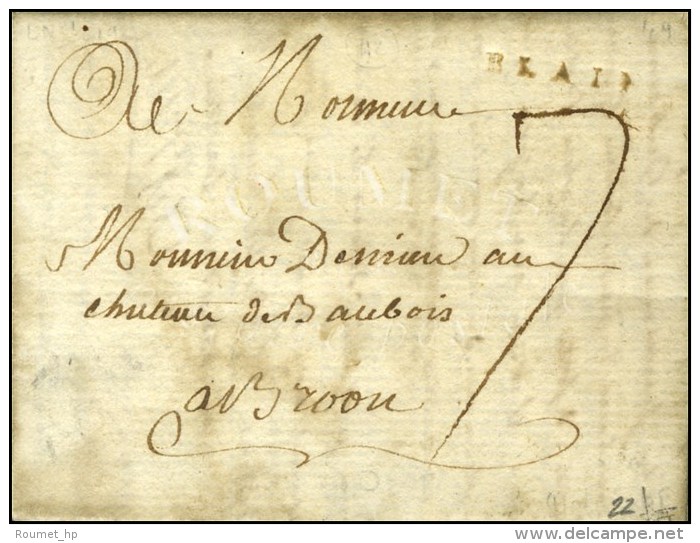 BLAIN
A Monsieur
7
Monsieur Derrien au
chateau de Baubois
a Broon
ROUMET
22
Roumet_hp
www.delcampe.net